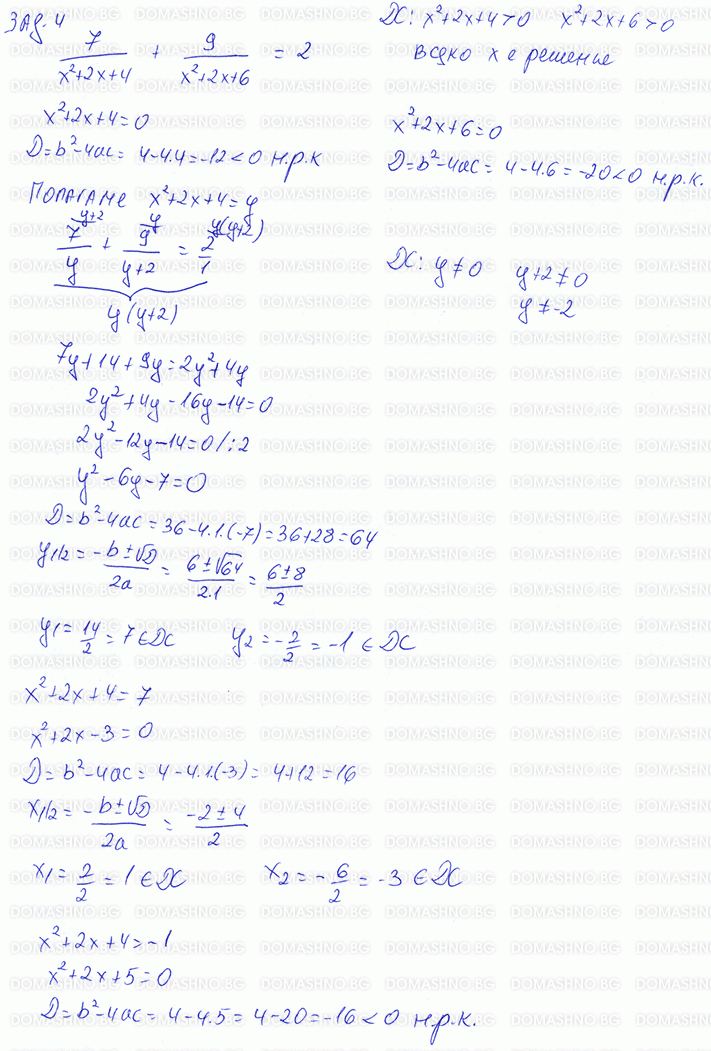 Зад. 4
7/(x²+2x+4) + 9/(x²+2x+6) = 2
ДС: x²+2x+4>0 x²+2x+6>0
всяко x е решение
x²+2x+4=0
D=b²-4ac= 4-4.4=-12<0 н.р.к
x²+2x+6=0
D=b²-4ac= 4-4.6=-20<0 н.р.к.
Полагаме x²+2x+4=y
7/y (y+2) + 9/(y+2) (y) = 2/1 y(y+2)
y(y+2)
ДС: y≠0 y+2≠0
y≠-2
7y+14+9y=2y²+4y
2y²+4y-16y-14=0
2y²-12y-14=0/:2
y²-6y-7=0
D=b²-4ac=36-4.1.(-7)=36+28=64
y1/2 = (-b±√D)/2a = (6±√64)/2.1 = (6±8)/2
y1=14/2=7∈ДС y2=-2/2=-1∈ДС
x²+2x+4=7
x²+2x-3=0
D=b²-4ac= 4-4.1.(-3)= 4+12=16
x1/2= (-b±√D)/2a = (-2±4)/2
x1=2/2=1∈ДС x2=-6/2=-3∈ДС
x²+2x+4=-1
x²+2x+5=0
D=b²-4ac= 4-4.5= 4-20=-16<0 н.р.к.
DOMASHNO.BG